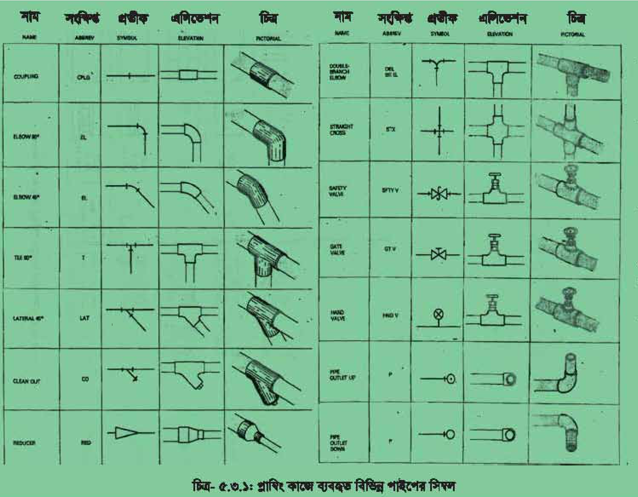 নাম সংক্ষিপ্ত প্রতীক এলিভেশন চিত্র
NAME ABBREV SYMBOL ELEVATION PICTORIAL
COUPLING CPLG
ELBOW 90° EL
ELBOW 45° EL
TEE 90° T
LATERAL 45° LAT
CLEAN OUT CO
REDUCER RED
নাম সংক্ষিপ্ত প্রতীক এলিভেশন চিত্র
NAME ABBREV SYMBOL ELEVATION PICTORIAL
DOUBLE-
BRANCH
ELBOW
DBL
BR EL
STRAIGHT
CROSS
STX
SAFETY
VALVE
SFTY V
GATE
VALVE
GT V
HAND
VALVE
HND V
PIPE
OUTLET UP
P
PIPE
OUTLET
DOWN
P
চিত্র- ৫.৩.১: প্লাম্বিং কাজে ব্যবহৃত বিভিন্ন পাইপের সিম্বল